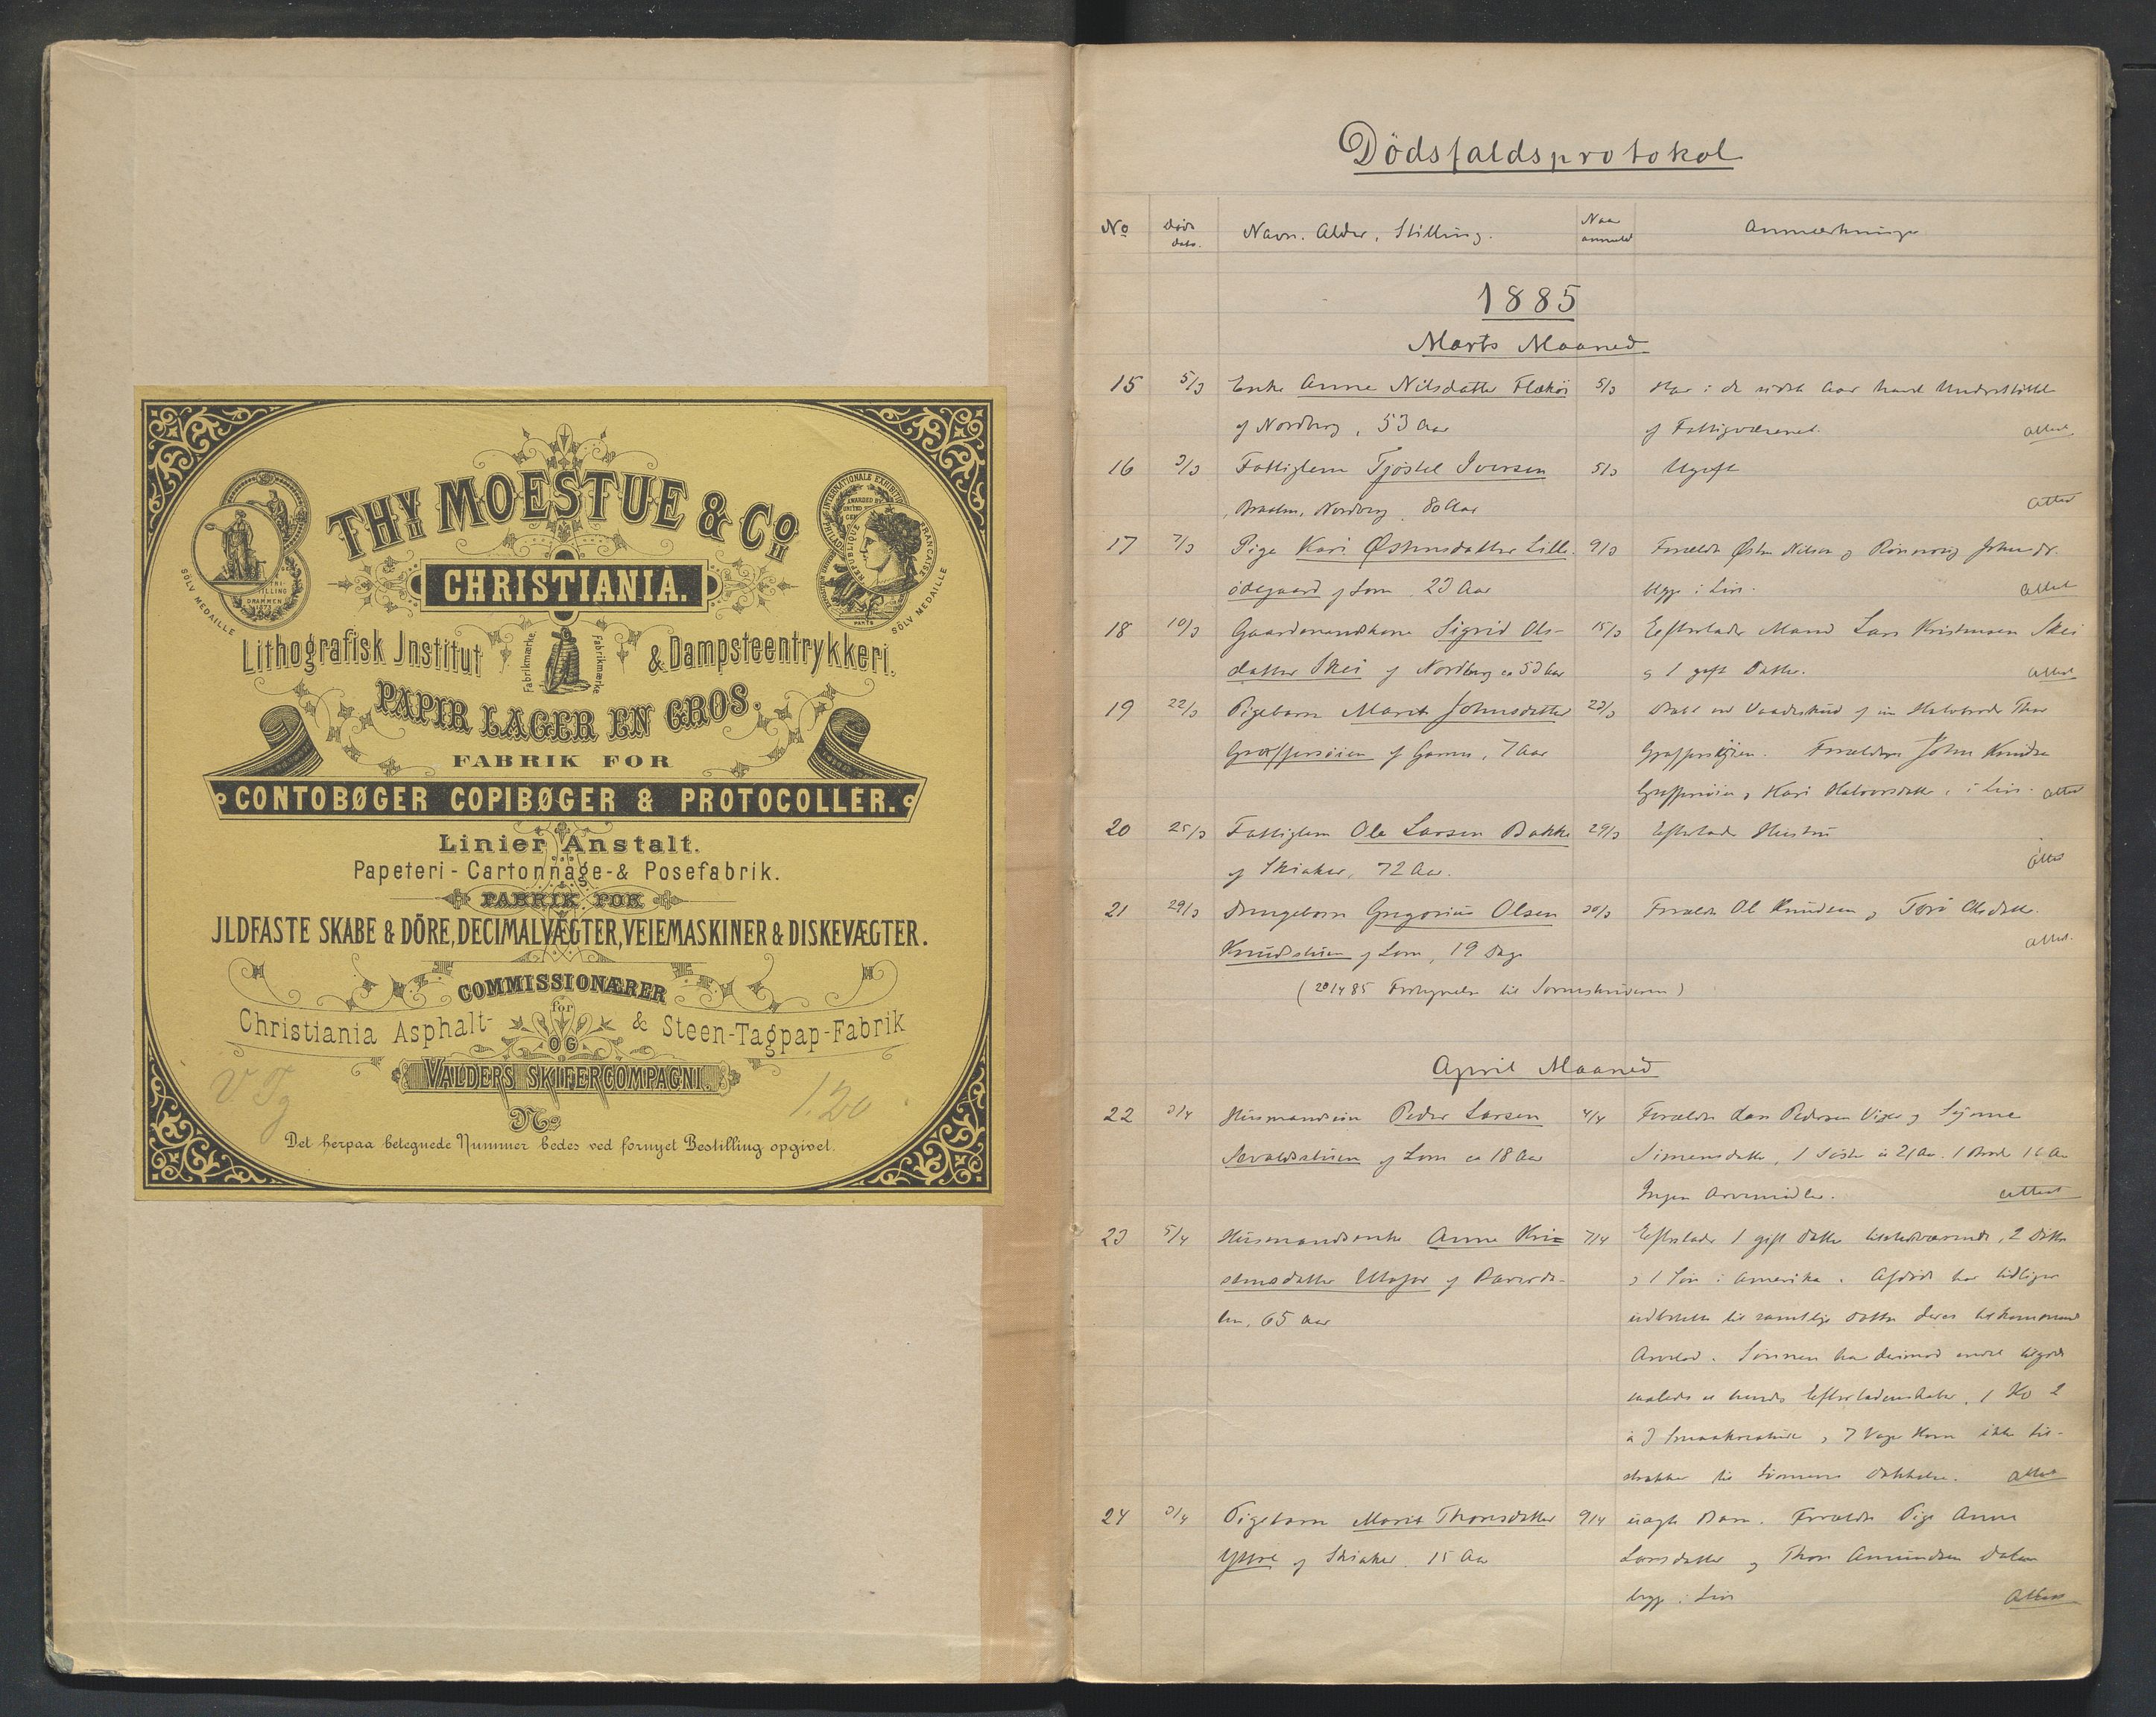 THS MOESTUE & Co
CHRISTIANIA.
INTERNATIONALE EXHIBITION
AWARDED BY
UNITED
REPUBLIQUE FRANCAISE
PARIS
DRAMMEN
SÖLV MEDAILLE
SÖLV MEDAILLE
Lithografisk Institut & Dampsteentrykkeri.
Fabrikmærke
Fabrikmærke
PAPIR LAGER EN GROS.
FABRIK FOR
CONTOBØGER COPIBØGER & PROTOCOLLER.
Linier Anstalt.
Papeteri - Cartonnage- & Posefabrik.
FABRIK FOR
ILDFASTE SKABE & DÖRE, DECIMALVÆGTER, VEIEMASKINER & DISKEVÆGTER.
COMMISSIONÆRER
for
Christiania Asphalt- & Steen-Tagpap-Fabrik
OG
VALDERS SKIFERCOMPAGNI.
No
1.20
Det herpaa betegnede Nummer bedes ved fornyet Bestilling opgivet.
Dödsfaldsprotokol
No Døds dato. Navn. Alder, Stilling. Naar anmeldt Anmærkninger
1885
Marts Maaned
15 5/3 Enke Anne Nilsdatter 5/3 Har i de sidste Aar havt Understøttelse
af Nordberg, 53 Aar af Fattigvæsenet. attest
16 3/3 Fattiglem Tjöstel Iversen 5/3 Ugift
Nordberg, 80 Aar attest
17 7/3 Pige Kari Østensdatter Lille- 9/3 Forældre Østen Nilsen og Rönnaug Johnsdr.
ödegaard af Lom, 23 Aar begge i Live. attest
18 10/3 Gaardmandskone Sigrid Ols- 15/3 Efterlader Mand Lars Kristensen Skei
datter Skei af Nordberg ca 53 Aar og 1 gift Datter. attest
19 22/3 Pigebarn Marit Johnsdatter 23/3 Død ved Vaadeskud af sin Halvbroder Thor
af Garmo, 7 Aar Forældre John Knudsen
og Kari Halvorsdatter, i Live. attest
20 25/3 Fattiglem Ole Larsen Bakke 29/3 Efterlader Hustru
af Skiaker, 72 Aar. attest
21 29/3 Drengebarn Gregorius Olsen 30/3 Forældre Ol Knudsen og Toro Olsdatter.
Knudsstuen af Lom, 19 Dage attest.
(20/4 85 til Sorenskriveren)
April Maaned
22 3/4 Husmandssön Peder Larsen 4/4 Forældre Lars Pedersen og
af Lom ca 18 Aar Simensdatter, 1 Söster 21 Aar. 1 Broder 16 Aar
Ingen Arvemidler. attest
23 5/4 Husmandsenke Anne Kri= 7/4 Efterlader 1 gift Datter tilstedeværende, 2 Døttre
stensdatter af Bæverda- og 1 Sön i Amerika. Afdöde har tidligere
len, 65 Aar udbetalt til samtlige Døttre deres tilkommende
Arvelod. Sönnen har derimod endel tilgode
hendes Efterladenskaber, 1 Ko 2
à 3 Smaakreature og 7 Korn ikke til-
strækker til Sönnens Dækkelse. attest
24 3/4 Pigebarn Marit Thorsdatter 9/4 uægte Barn. Forældre Pige Anne
af Skiaker, 15 Aar Larsdatter og Thor Amundsen Dalen
begge i Live attest